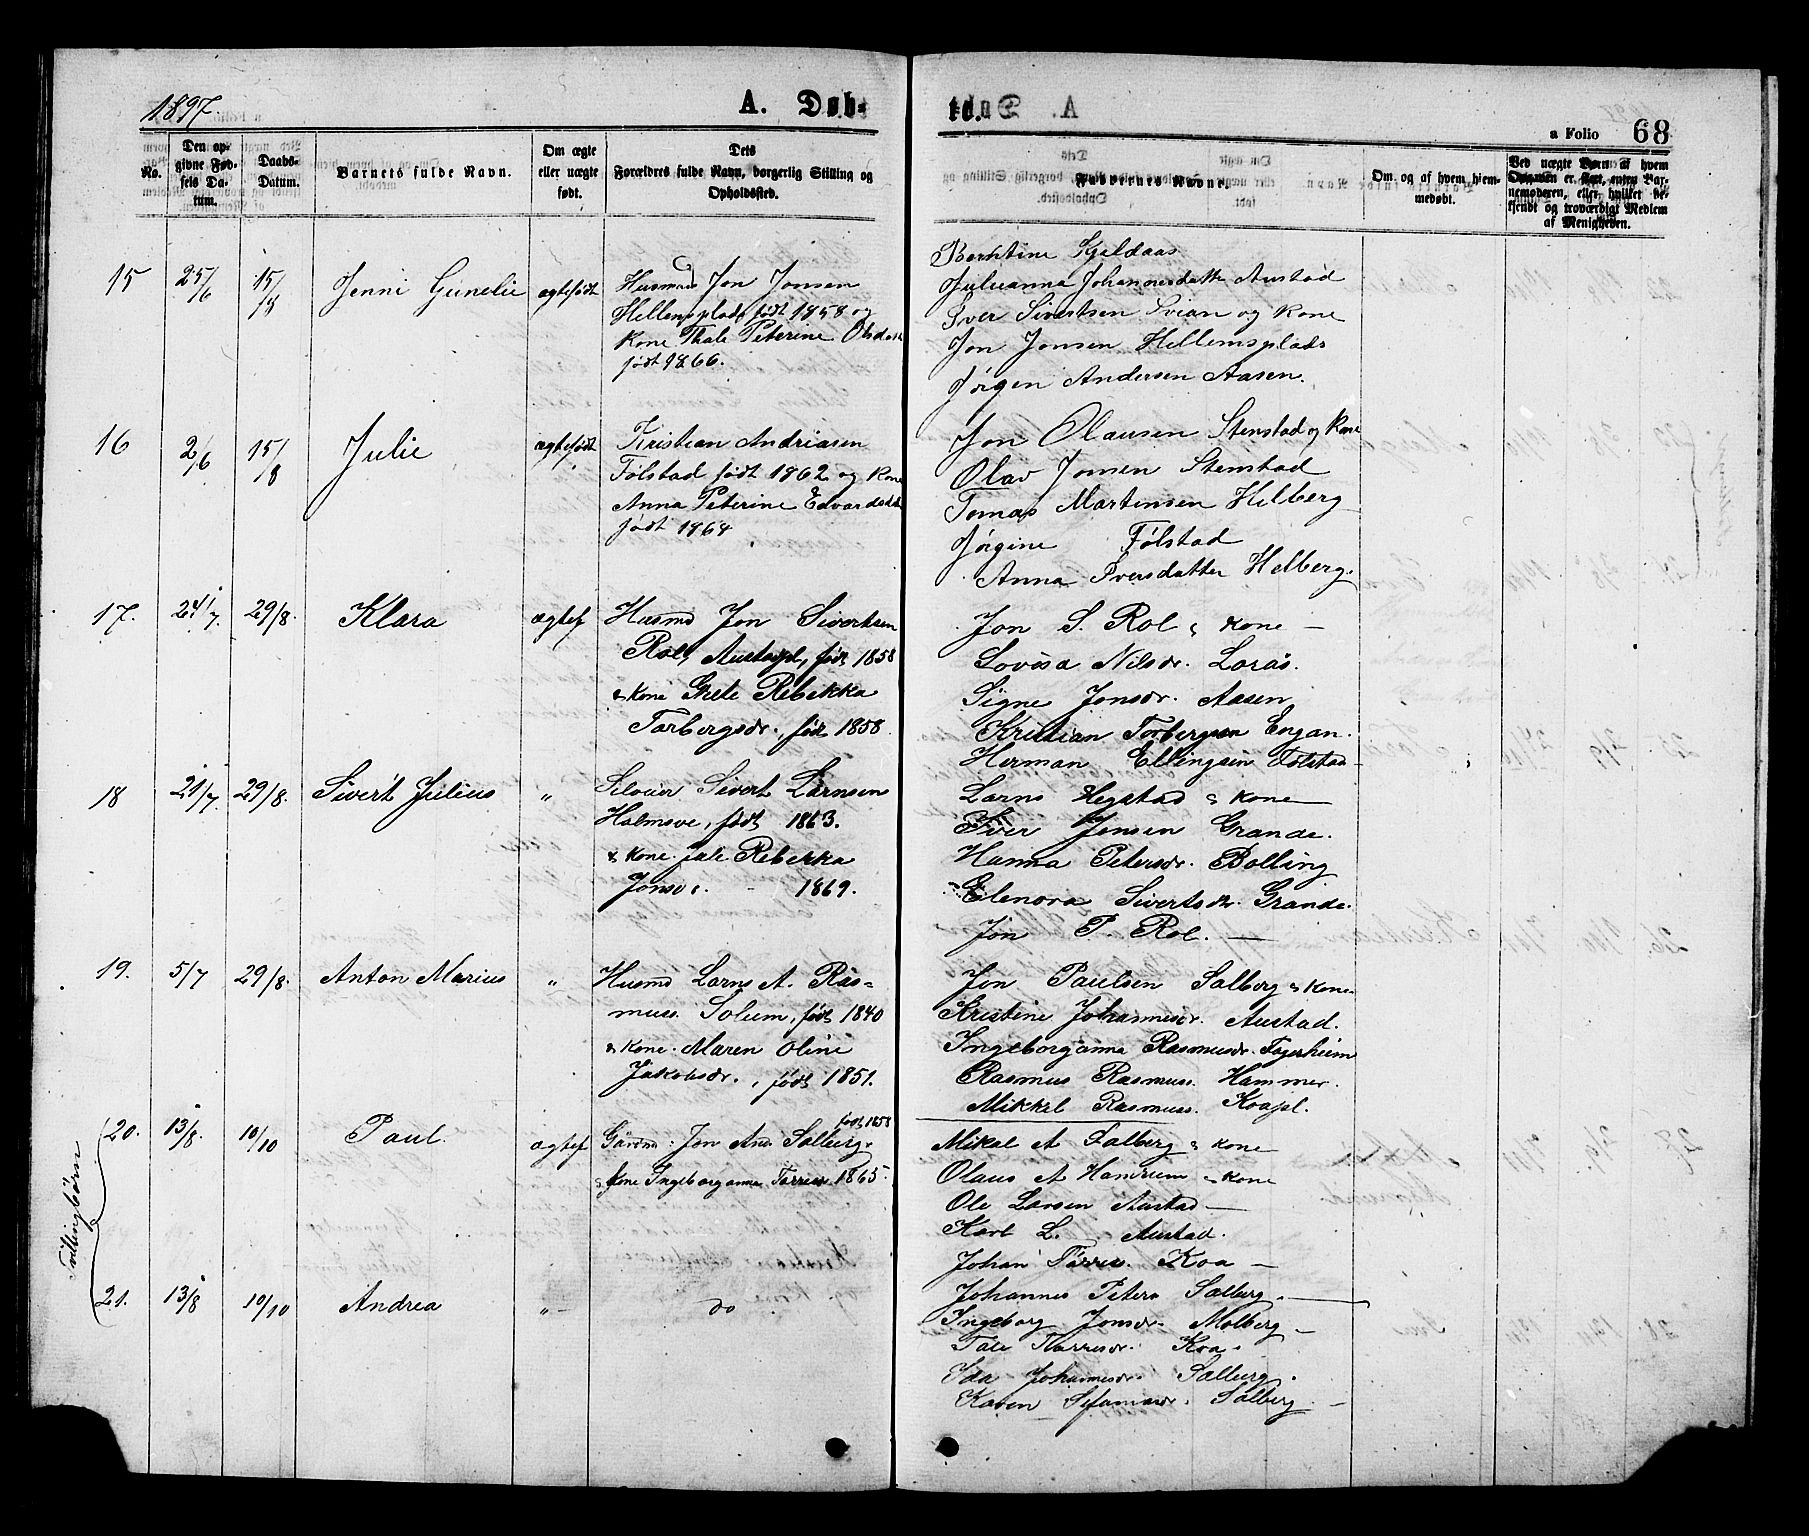 1897.
A. Døb-
te.
a Folio 68
No.
Den op-
givne Fød-
sels Da-
tum.
Daabs-
Datum.
Barnets fulde Navn.
Om ægte
eller uægte
født.
Dets
Forældres fulde Navn, borgerlig Stilling og
Opholdssted.
Faddernes Navne.
Om, og af hvem hjem-
medøbt.
Ved uægte Børn af hvem
Opgaven er sket, enten Bar-
nemoderen, eller hvilket be-
kjendt og troværdigt Medlem
af Menigheden.
15 25/6 15/8 Jenni Gunelie ægtefødt
Husmand Jon Jonsen
Hellemsplads født 1858 og
Kone Thale Peterine Olsdatter
født 1866.
Berntine Kjeldaas
Julieanna Johannesdatter Austad
Iver Sivertsen Svian og Kone
Jon Jonsen Hellemsplads
Jørgen Andersen Aasen.
16 2/6 15/8 Julie ægtefødt
Kristian Andriasen
Følstad født 1862 og Kone
Anna Peterine Edvardsdatter
født 1864
Jon Olausen Stenstad og Kone
Olav Jonsen Stenstad
Tomas Martinsen Helberg
Jørgine Følstad
Anna Iversdatter Helberg.
17. 24/7. 29/8. Klara ægtef
Husmd Jon Sivertsen
Rol, Austadpl, født 1858
& Kone Grete Rebekka
Torbergsdr., født 1858.
Jon S. Rol & Kone —
Lovisa Nilsdr. Loraas.
Signe Jonsdr. Aasen
Kristian Torbergsen Engan.
Herman Ellingsen Følstad —
18 21/7 29/8. Sivert Julius "
Sivert Larnsen
Holmsve, født 1863.
& Kone Jule Rebekka
Jonsdr. - 1869.
Larns Hegstad & Kone —
Iver Jensen Grande.
Hanna Petersdr. Bolling
Elenora Sivertsdr. Grande.
Jon P. Rol. —
19. 5/7 29/8. Anton Marius "
Husmd Larns A. Ras=
muss. Solum, født 1840
& Kone. Maren Oline
Jakobsdr., født 1851.
Jon Paulsen Salberg & Kone
Kristine Johannesdr. Austad.
Ingeborganna Rasmusdr. Fagerheim
Rasmus Rasmuss. Hammer.
Mikkel Rasmuss. Koapl.
Tvillingbørn
20. 13/8. 10/10 Paul. ægtef
født 1858
Gårdm. Jon And. Salberg
& Kone Ingeborganna Torries. 1865.
Mikal A Salberg & Kone
Olaus A Hamrum & Kone
Ole Larsen Austad —
Karl L. Austad.
Johan Torres. Koa —
21. 13/8 10/10 Andrea " — do
Johannes Peters Salberg. —
Ingeborg Jonsdr. Molberg —
Tale Torresdr. Koa.
Ida Johannesdr. Salberg.
Karen Stefansdr. Salberg. —